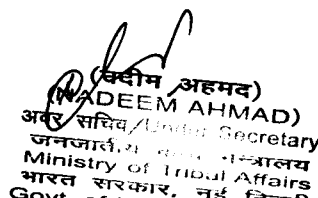 (नदीम अहमद)
(NADEEM AHMAD)
अवर सचिव/Under Secretary
जनजातीय मन्त्रालय
Ministry of Tribal Affairs
भारत सरकार, नई
Govt. of